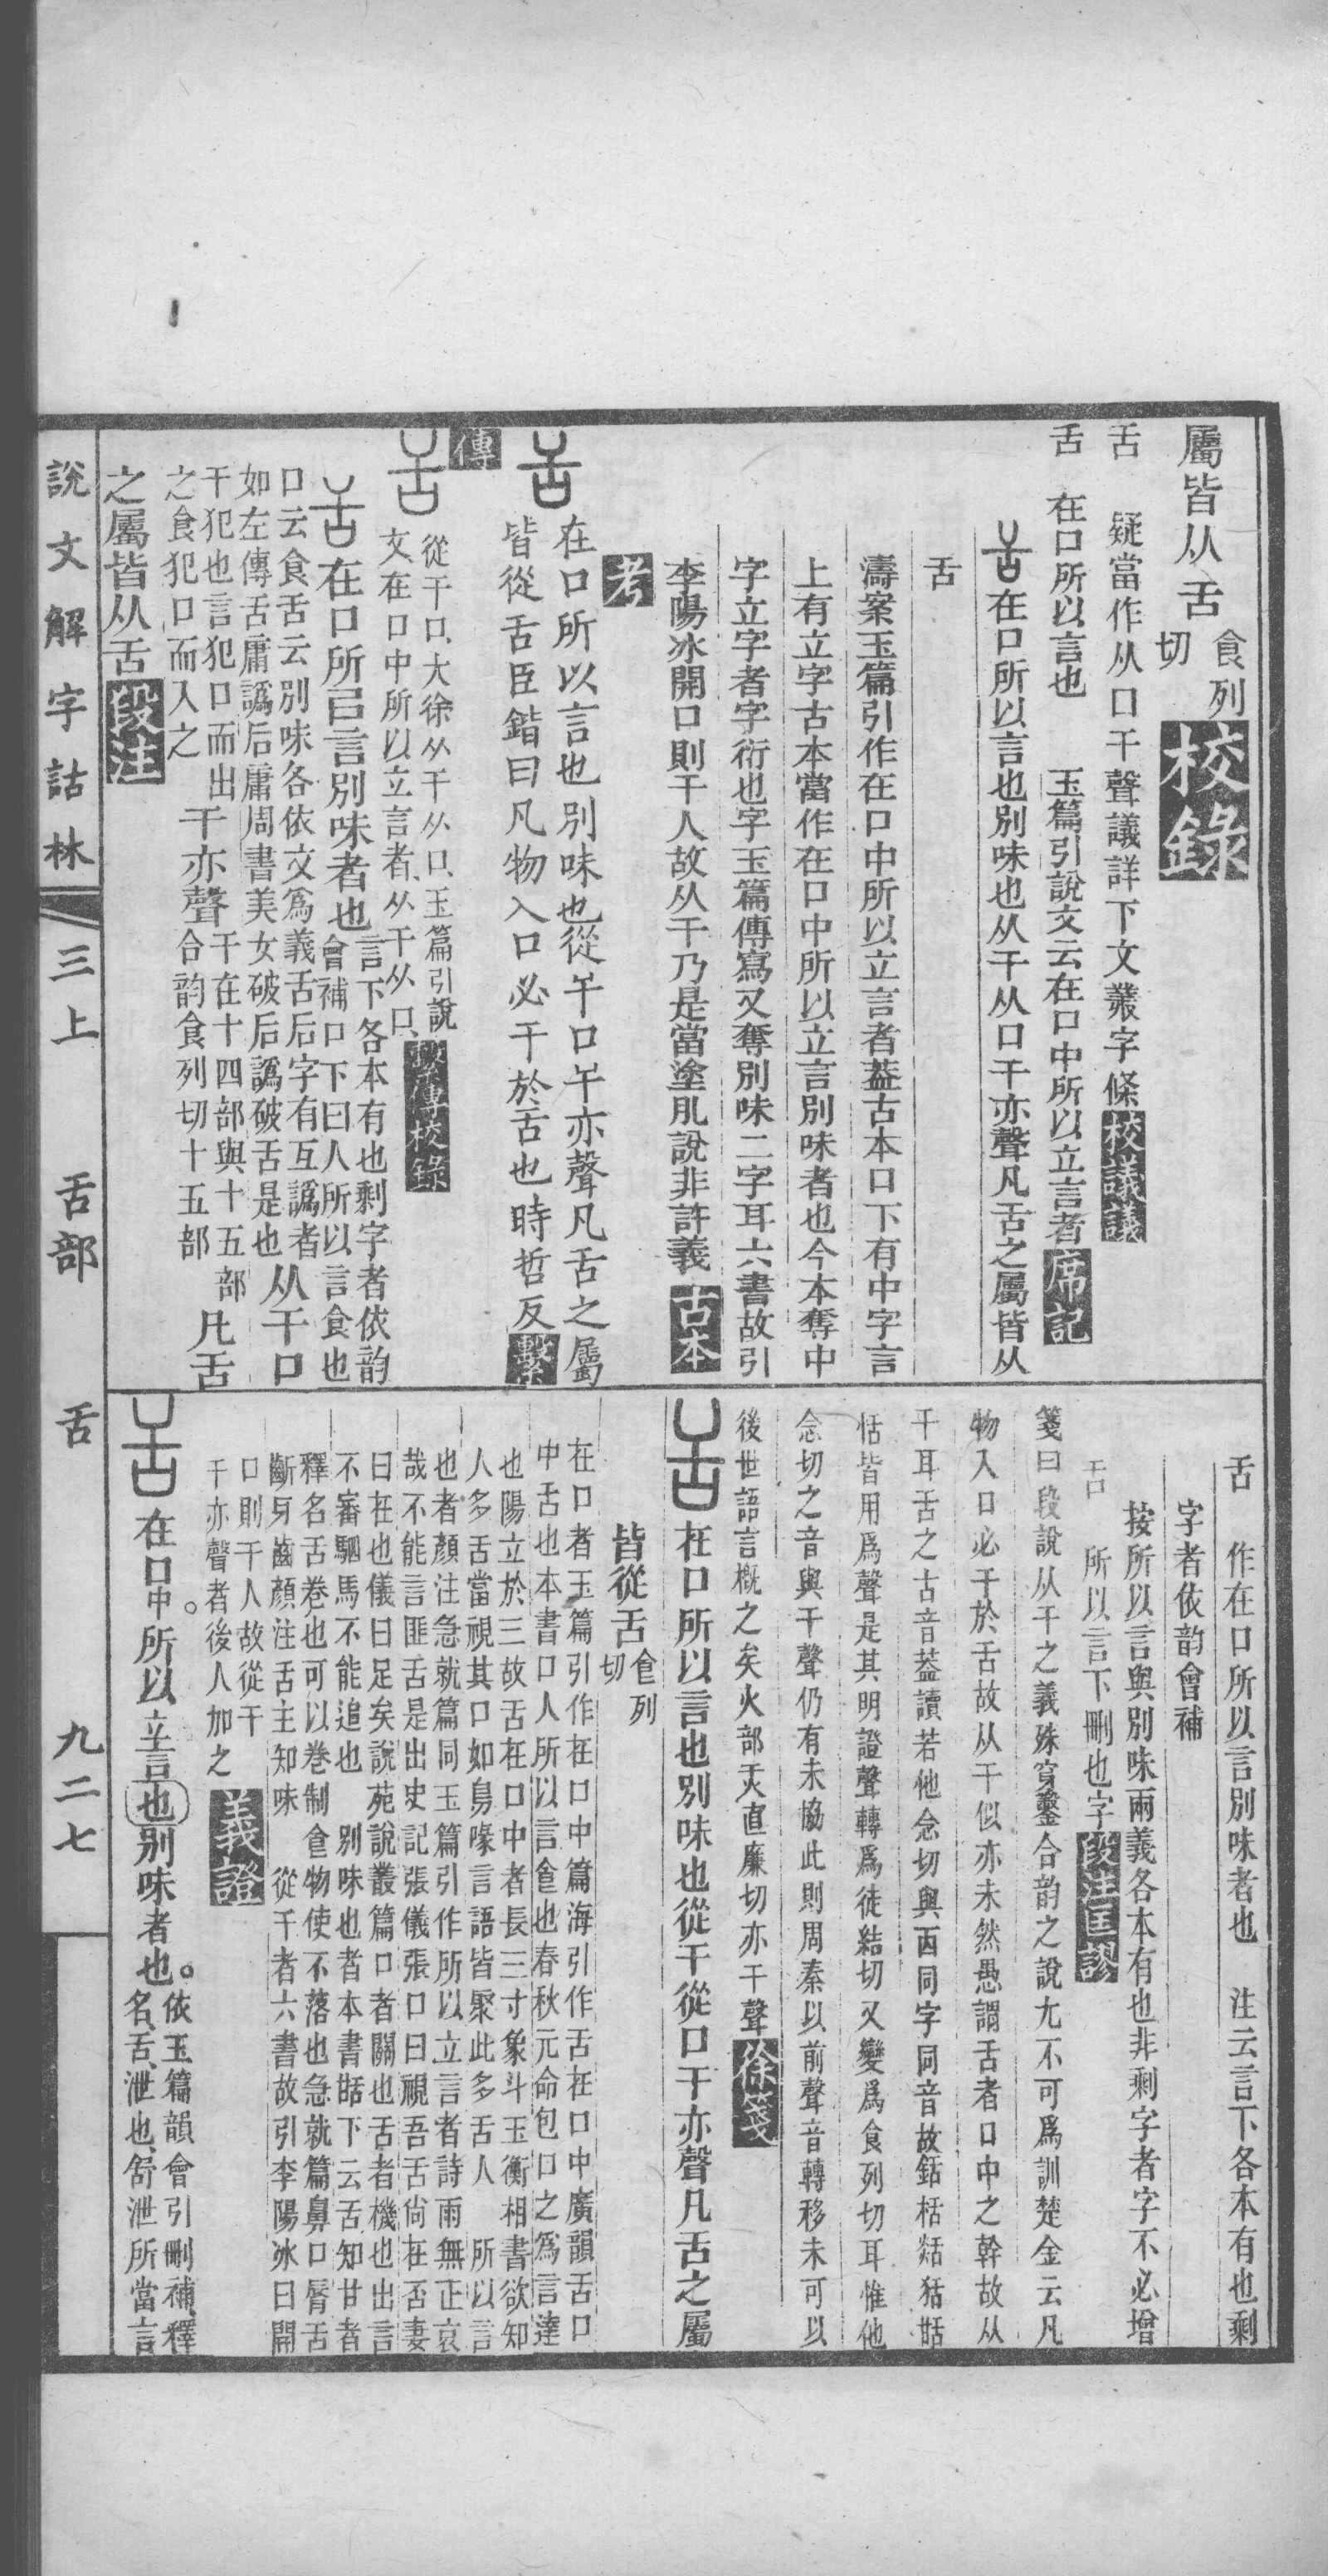 屬皆从舌食列切校錄
舌　疑當作从口干聲議詳下文叢字條校議議
舌　在口所以言也　玉篇引說文云在口中所以立言者席記
舌在口所以言也別味也从干从口干亦聲凡舌之屬皆从
舌
濤案玉篇引作在口中所以立言者葢古本口下有中字言
上有立字古本當作在口中所以立言別味者也今本奪中
字立字者字衍也字玉篇傳寫又奪別味二字耳六書故引
李陽冰開口則干人故从干乃是當塗肊說非許義古本
考
舌在口所以言也別味也從干口干亦聲凡舌之屬
皆從舌臣鍇曰凡物入口必干於舌也時哲反繫
傳
舌從干口大徐从干从口玉篇引說
文在口中所以立言者从干从口繫傳校錄
舌在口所㠯言別味者也言下各本有也剩字者依韵
會補口下曰人所以言食也
口云食舌云別味各依文爲義舌后字有互譌者
如左傳舌庸譌后庸周書美女破后譌破舌是也从干口
干犯也言犯口而出
之食犯口而入之干亦聲干在十四部與十五部
合韵食列切十五部凡舌
之屬皆从舌段注
舌　作在口所以言別味者也　注云言下各本有也剩
字者依韵會補
按所以言與別味兩義各本有也非剩字者字不必增
舌　所以言下刪也字段注匡謬
箋曰段說从干之義殊穿鑿合韵之說尢不可爲訓楚金云凡
物入口必干於舌故从干似亦未然愚謂舌者口中之幹故从
干耳舌之古音葢讀若他念切與㐁同字同音故銛栝䑙狧甛
恬皆用爲聲是其明證聲轉爲徒結切又變爲食列切耳惟他
念切之音與干聲仍有未協此則周秦以前聲音轉移未可以
後世語言槪之矣火部灷直廉切亦干聲徐箋
舌在口所以言也別味也從干從口干亦聲凡舌之屬
皆從舌食列切
在口者玉篇引作在口中篇海引作舌在口中廣韻舌口
中舌也本書口人所以言食也春秋元命包口之爲言達
也陽立於三故舌在口中者長三寸象斗玉衡相書欲知
人多舌當視其口如鳥喙言語皆聚此多舌人　所以言
也者顏注急就篇同玉篇引作所以立言者詩雨無正哀
哉不能言匪舌是出史記張儀張口曰視吾舌尙在否妻
曰在也儀曰足矣說苑說叢篇口者關也舌者機也出言
不審駟馬不能追也　別味也者本書甛下云舌知甘者
釋名舌卷也可以卷制食物使不落也急就篇鼻口脣舌
齗牙齒顏注舌主知味　從干者六書故引李陽冰曰開
口則干人故從干
干亦聲者後人加之義證
舌在口中。所以立言也別味者也。依玉篇韻會引刪補、釋
名、舌、泄也、舒泄所當言
說文解字詁林　三上　舌部　舌　九二七